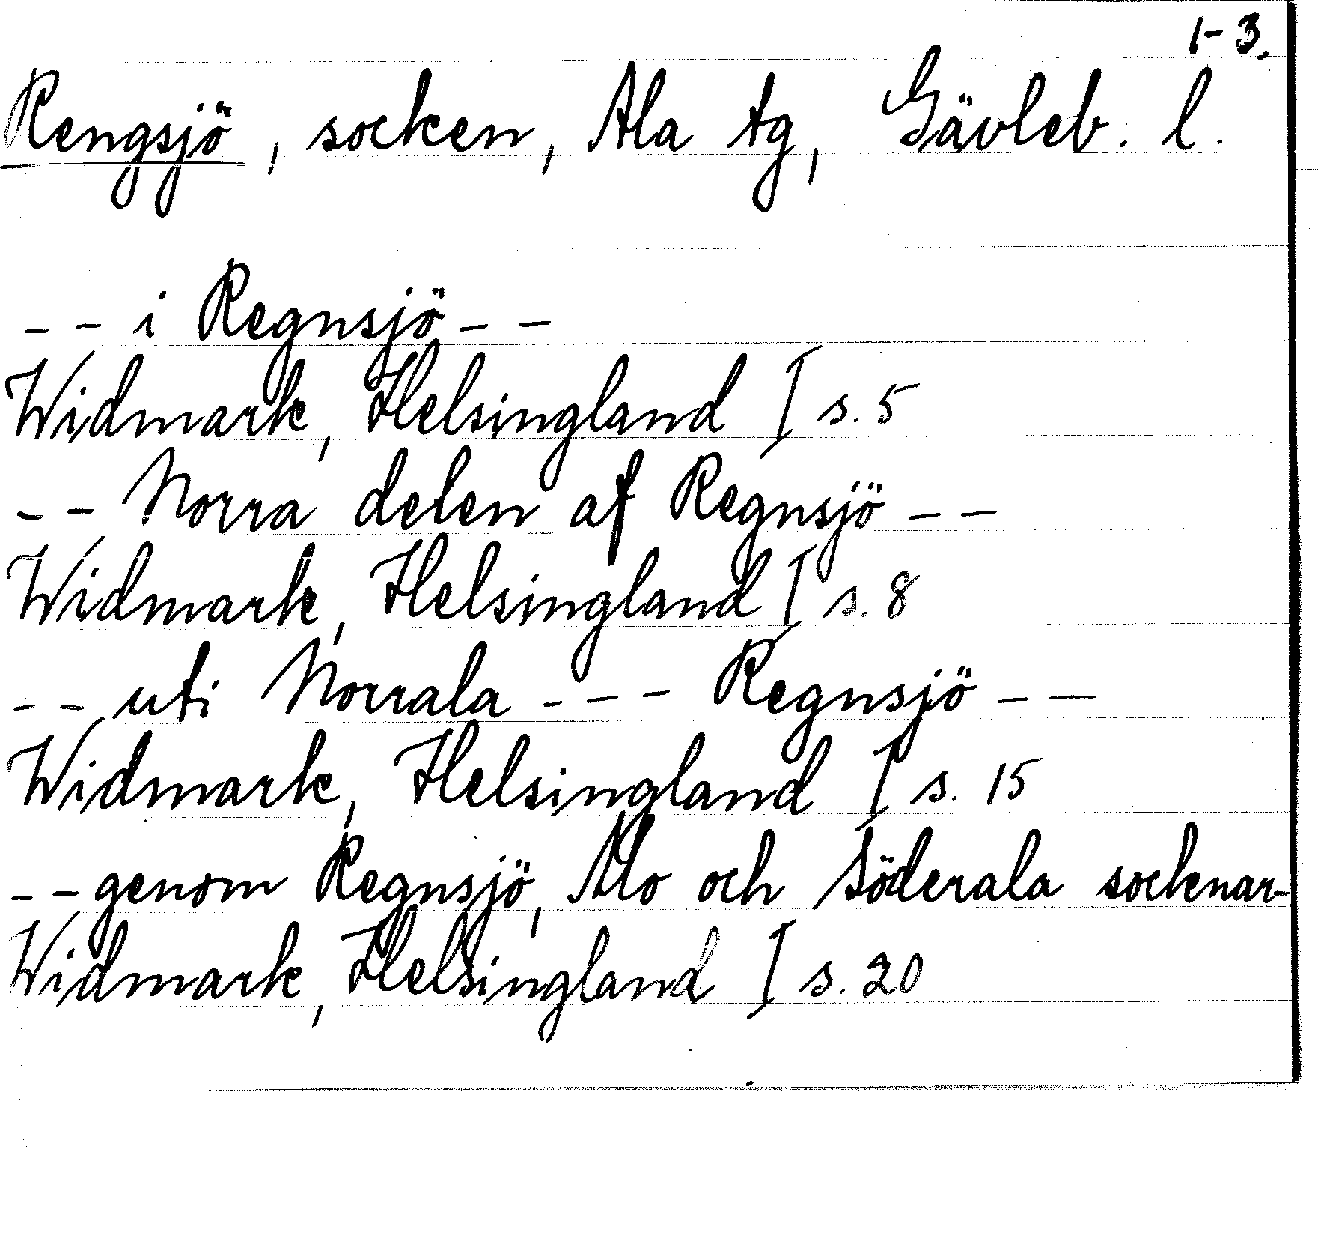 1-3.
Rengsjö, socken, Ala tg, Gävleb. l.
-- i Regnsjö --
Widmark, Helsingland I s. 5
-- Norra delen af Regnsjö --
Widmark, Helsingland I s. 8
-- uti Norrala --- Regnsjö --
Widmark, Helsingland I s. 15
-- genom Regnsjö, Mo och Söderala socknar-
Widmark, Helsingland I s. 20